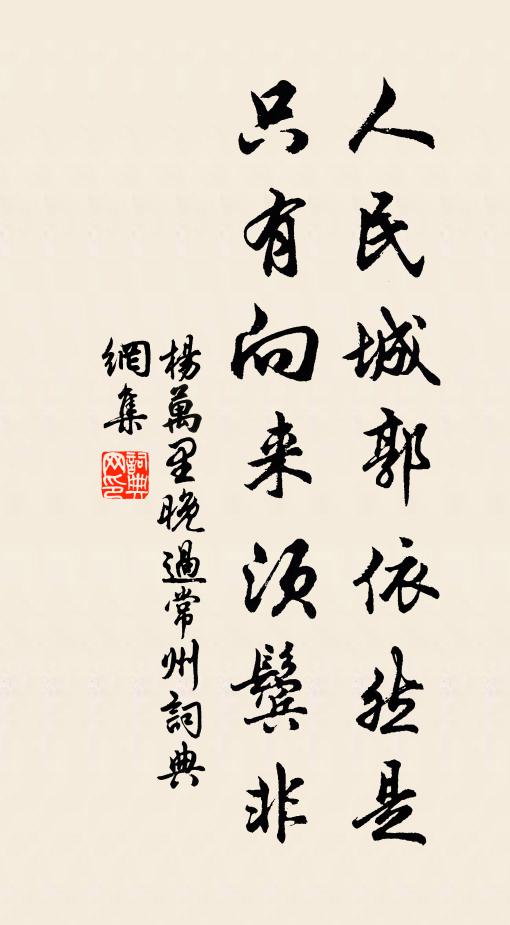 人民城郭依然是
只有向来须鬓非
楊萬里晚過常州詞典
網集
詞典
网印